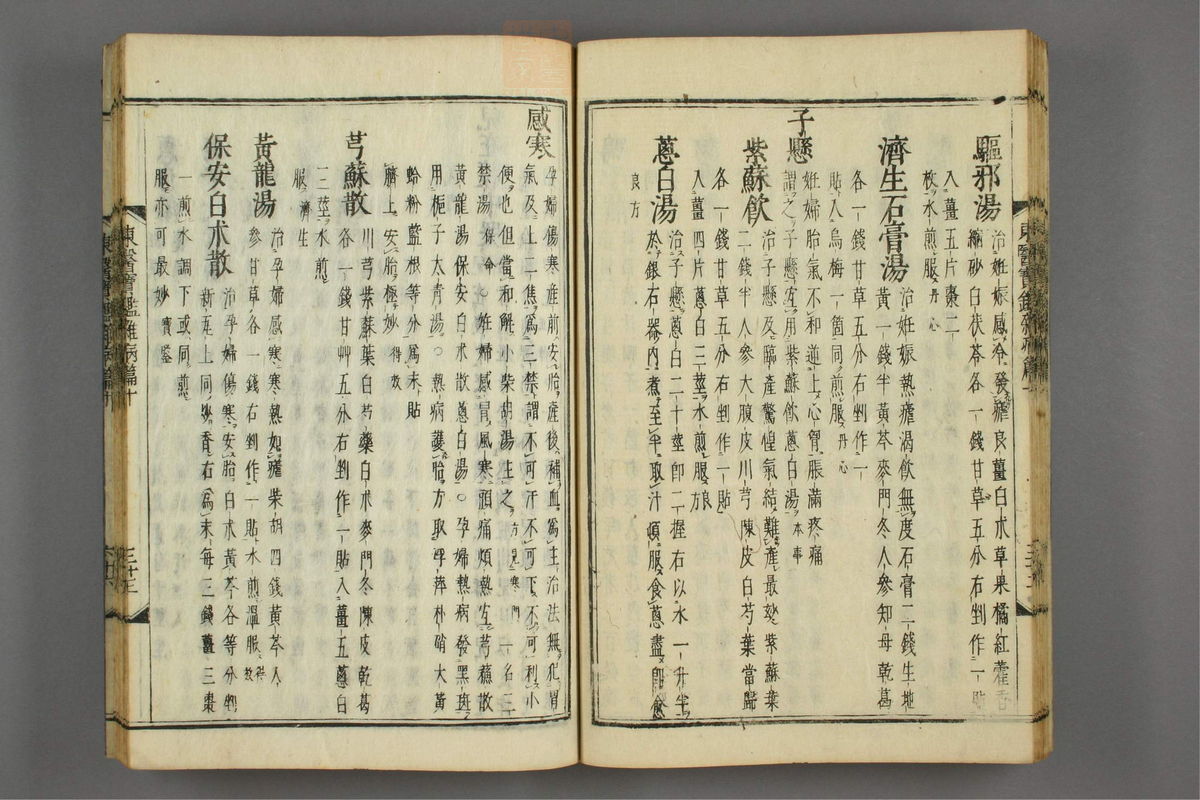 驅邪湯
治妊娠感冷發瘧良薑白朮草果橘紅藿香
縮砂白茯苓各一錢甘草五分右剉作一貼
入薑五片棗二
枚水煎服丹心
濟生石膏湯
治妊娠熱瘧渴飮無度石膏二錢生地
黃一錢半黃芩麥門冬人參知母乾葛
各一錢甘草五分右剉作一
貼入烏梅一箇同煎服丹心
子懸
妊婦胎氣不和逆上心胷脹滿疼痛
謂之子懸宜用紫蘇飮蔥白湯本事
紫蘇飮
治子懸及臨產驚惶氣結難產最妙紫蘇葉
二錢半人參大腹皮川芎陳皮白芍藥當歸
各一錢甘草五分右剉作一貼
入薑四片蔥白三莖水煎服良方
蔥白湯
治子懸蔥白二十莖卽二握右以水一升半
於銀石器內煮至半取汁頓服食蔥盡卽愈
良方
東醫寶鑑雜病篇十
感寒
孕婦傷寒產前安胎產後補血爲主治法無犯胃
氣及上二焦爲三禁謂不可汗不可下不可利小
便也但當和解小柴胡湯主之方見寒門一名三
禁湯保命妊婦感冒風寒頭痛煩熱宜芎蘇散
黃龍湯保安白朮散蔥白湯○孕婦熱病發黑斑
用梔子大青湯○熱病護胎方取浮萍朴硝大黃
蛤粉藍根等分爲末貼
臍上安胎極妙得效
芎蘇散
川芎紫蘇葉白芍藥白朮麥門冬陳皮乾葛
各一錢甘艸五分右剉作一貼入薑五蔥白
三莖水煎
服濟生
黃龍湯
治孕婦感寒寒熱如瘧柴胡四錢黃芩人
參甘草各一錢右剉作一貼水煎溫服得效
保安白朮散
治孕婦傷寒安胎白朮黃芩各等分剉
新瓦上同炒香右爲末每三錢薑三棗
一煎水調下或同煎
服亦可最妙寶鑑
東醫寶鑑雜病篇十
三十三